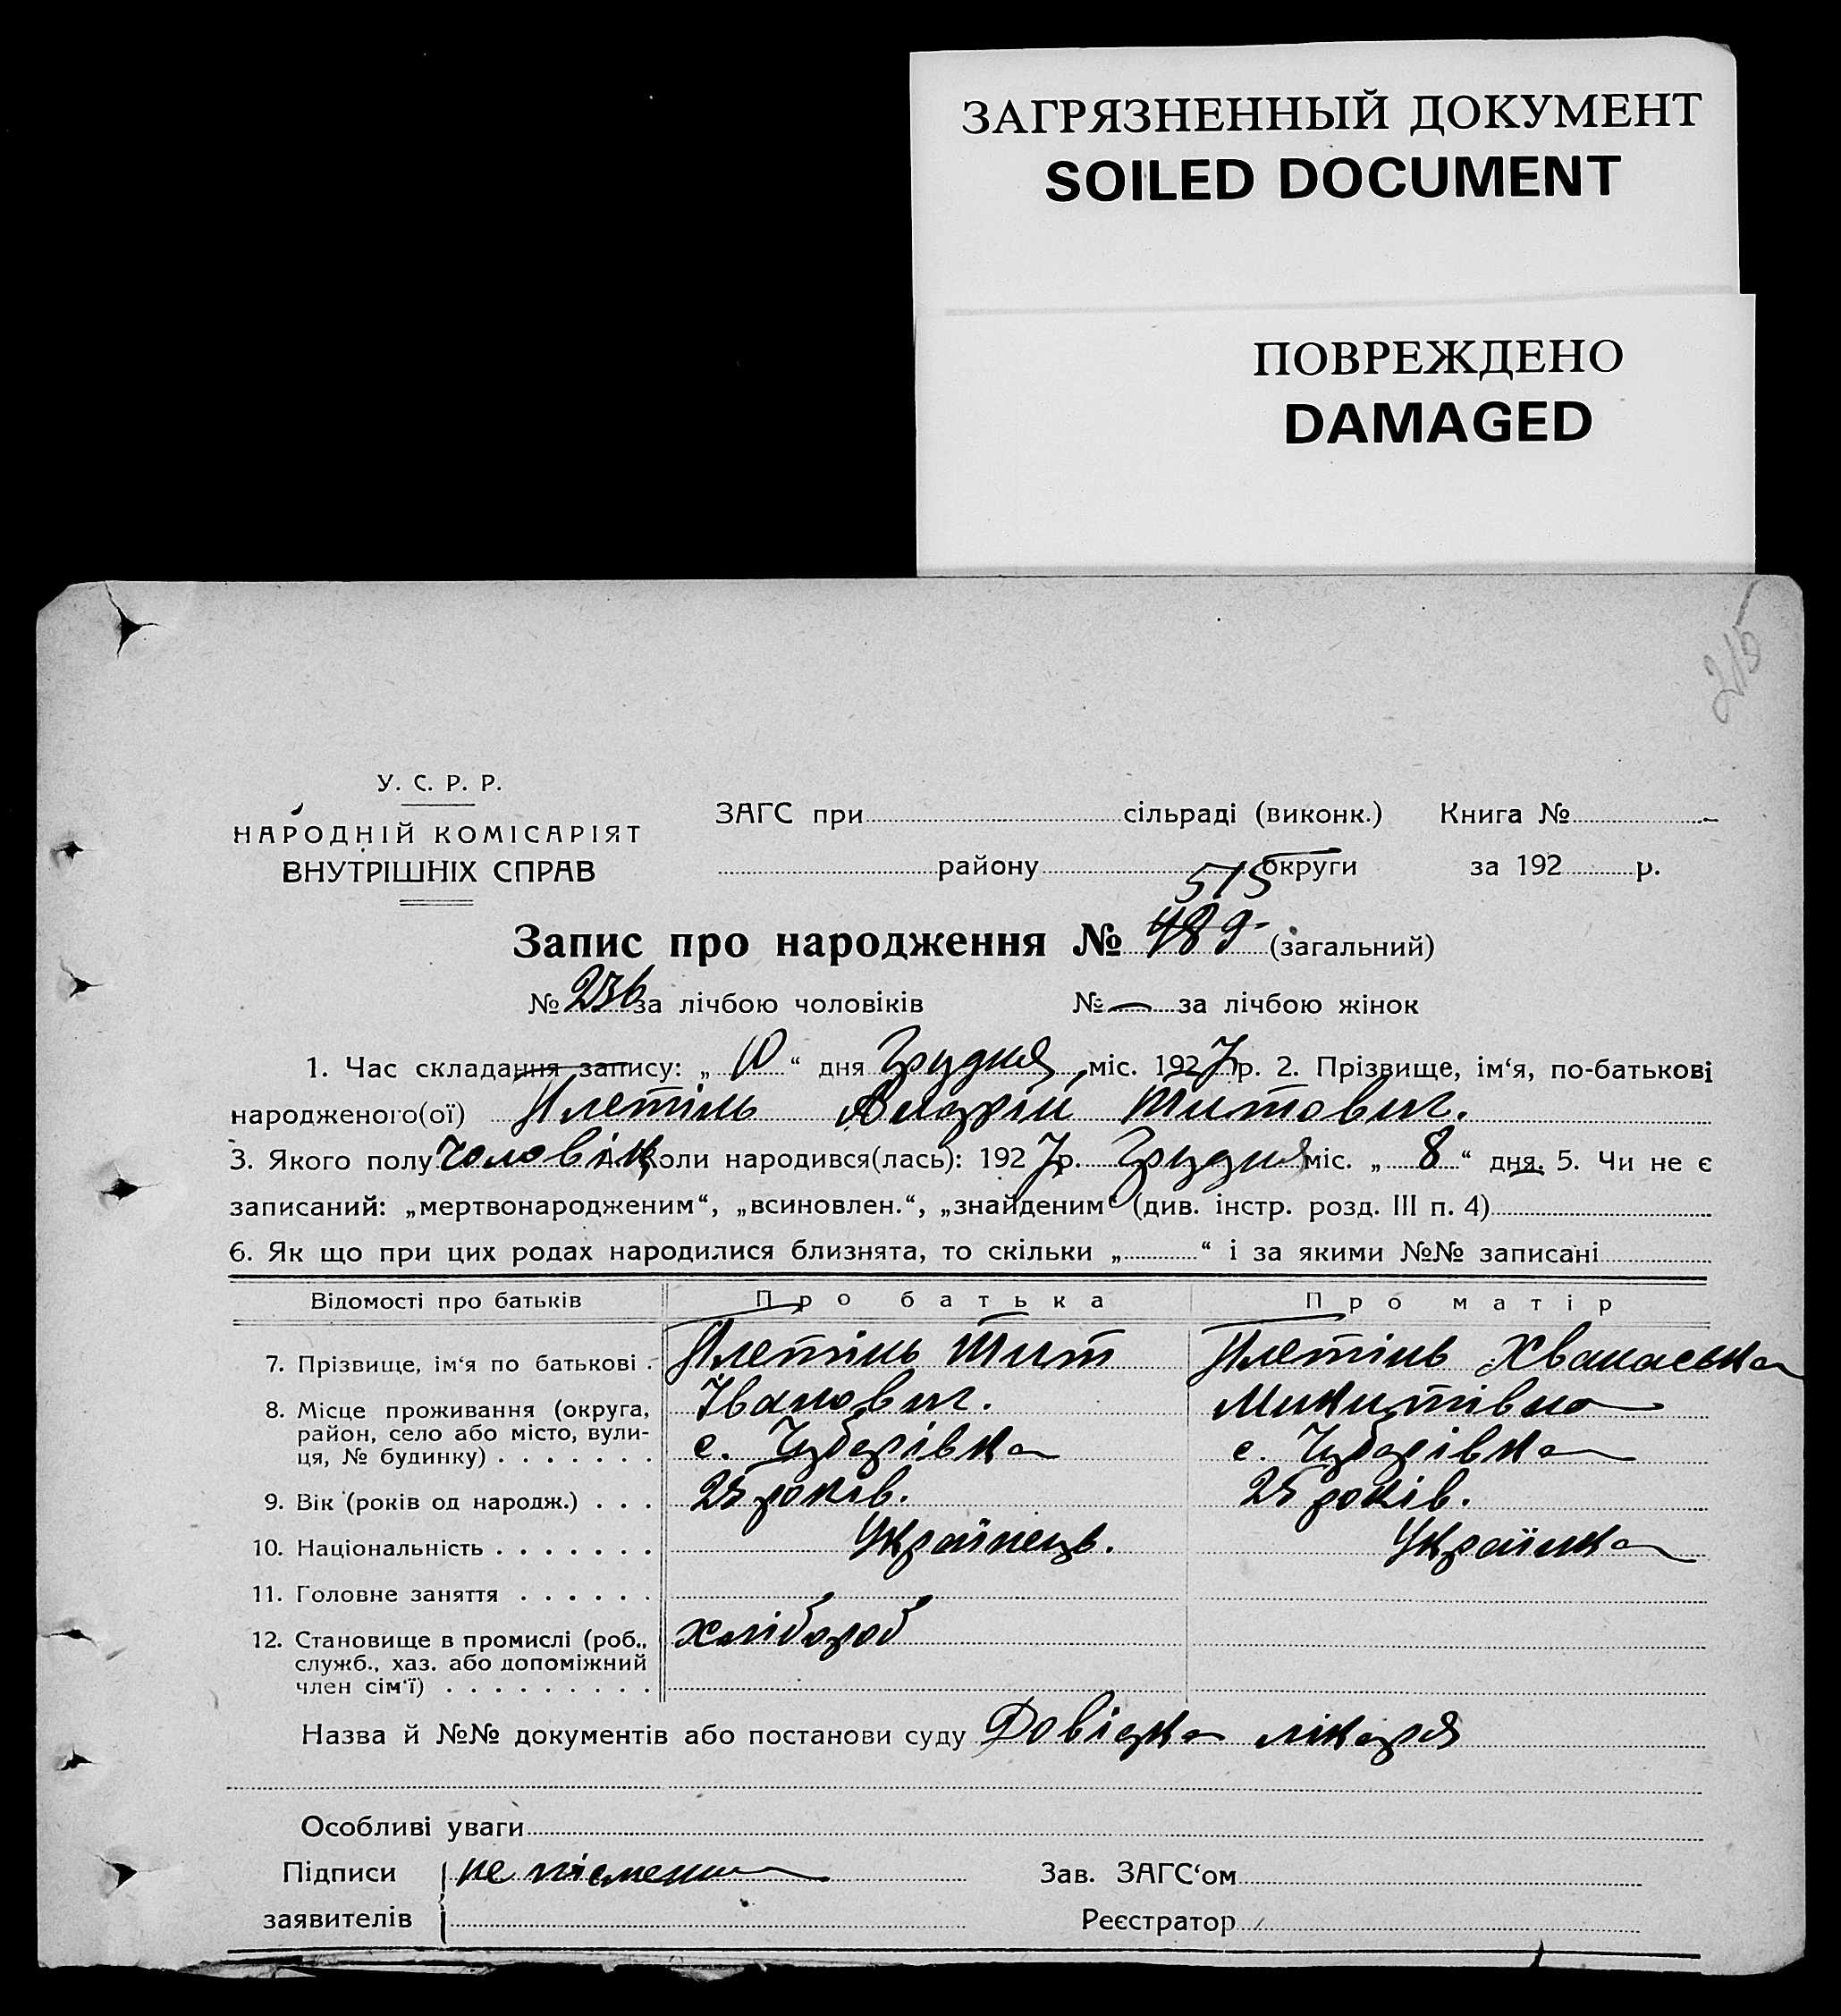 ЗАГРЯЗНЕННЫЙ ДОКУМЕНТ
SOILED DOCUMENT
ПОВРЕЖДЕНО
DAMAGED
215
У. С. Р. Р.
НАРОДНІЙ КОМІСАРІЯТ
ВНУТРІШНІХ СПРАВ
ЗАГС при сільраді (виконк.) Книга №
району округи за 192 р.
515
Запис про народження № 489 (загальний)
№ 236 за лічбою чоловіків № — за лічбою жінок
1. Час складання запису: „ 10 “ дня Грудня міс. 1927 р. 2. Прізвище, ім‘я, по-батькові
народженого(ої) Плетінь Андрій Титович.
3. Якого полу Чоловік 4. Коли народився(лась): 1927 р. Грудня міс. „ 8 “ дня. 5. Чи не є
записаний: „мертвонародженим“, „всиновлен.“, „знайденим“ (див. інстр. розд. III п. 4)
6. Як що при цих родах народилися близнята, то скільки „ “ і за якими №№ записані
Відомості про батьків Про батька Про матір
7. Прізвище, ім‘я по батькові . Плетінь Тит Плетінь Хванаська
8. Місце проживання (округа, Іванович. Микитівна
район, село або місто, вули-
ця, № будинку) . . . . . . . с. Чубарівка с. Чубарівка
9. Вік (років од народж.) . . . 25 років. 25 років.
10. Національність . . . . . . . Українець. Українка
11. Головне заняття . . . . . .
12. Становище в промислі (роб., хлібороб
служб., хаз. або допоміжний
член сім‘ї) . . . . . . . . .
Назва й №№ документів або постанови суду Довідка лікаря
Особливі уваги
Підписи не písменна Зав. ЗАГС‘ом
заявителів Реєстратор